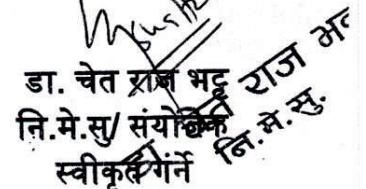 डा. चेत राज भट्ट
नि.मे.सु/ संयोजक
स्वीकृत गर्ने
राज भ
नि.मे.सु.